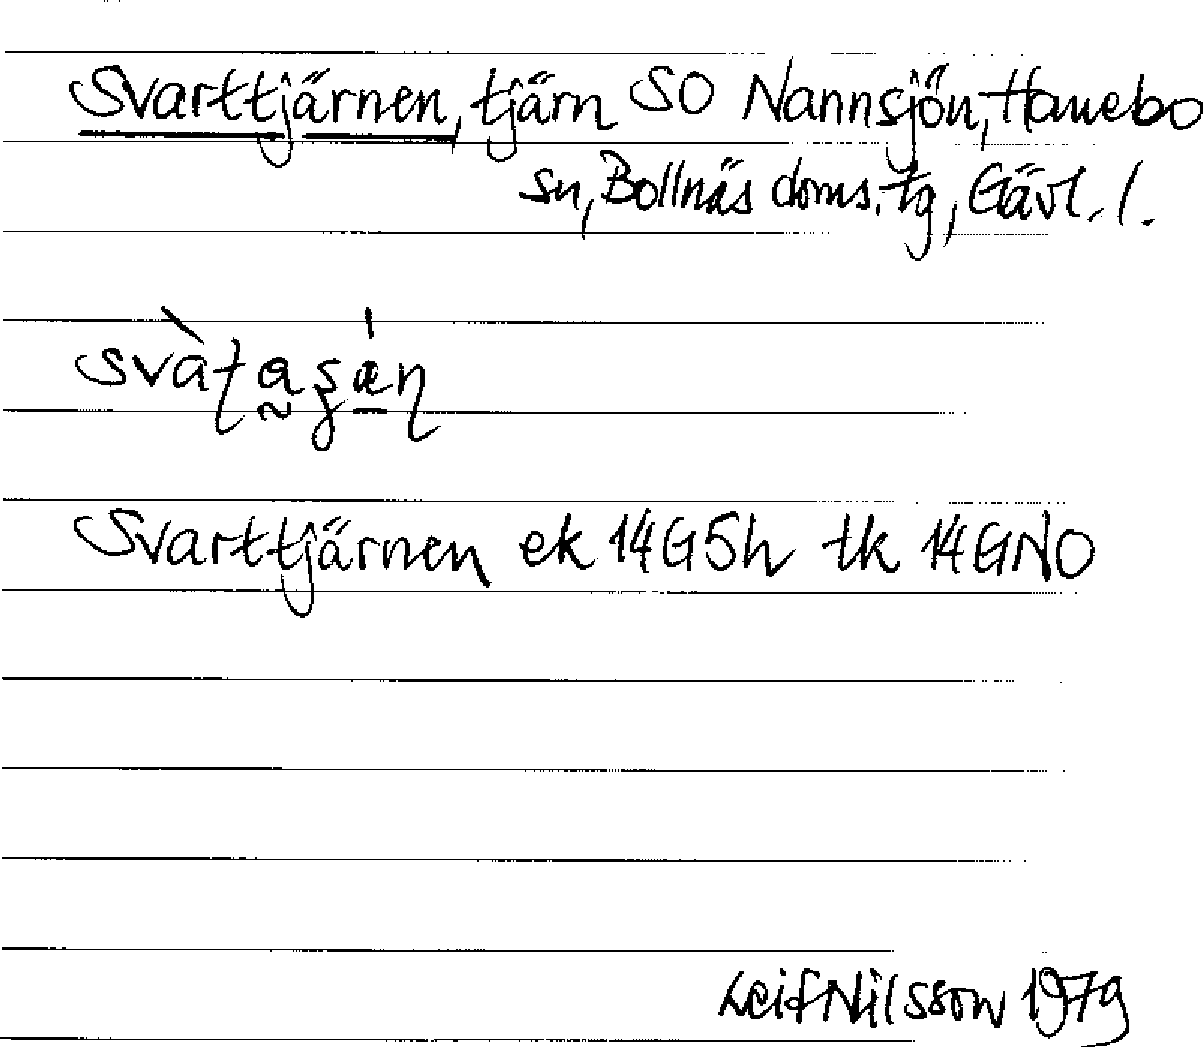 Svarttjärnen, tjärn SO Nannsjön, Hanebo
sn, Bollnäs doms. tg, Gävl. l.
Svarttjärnen ek 14G5h tk 14GNO
Leif Nilsson 1979